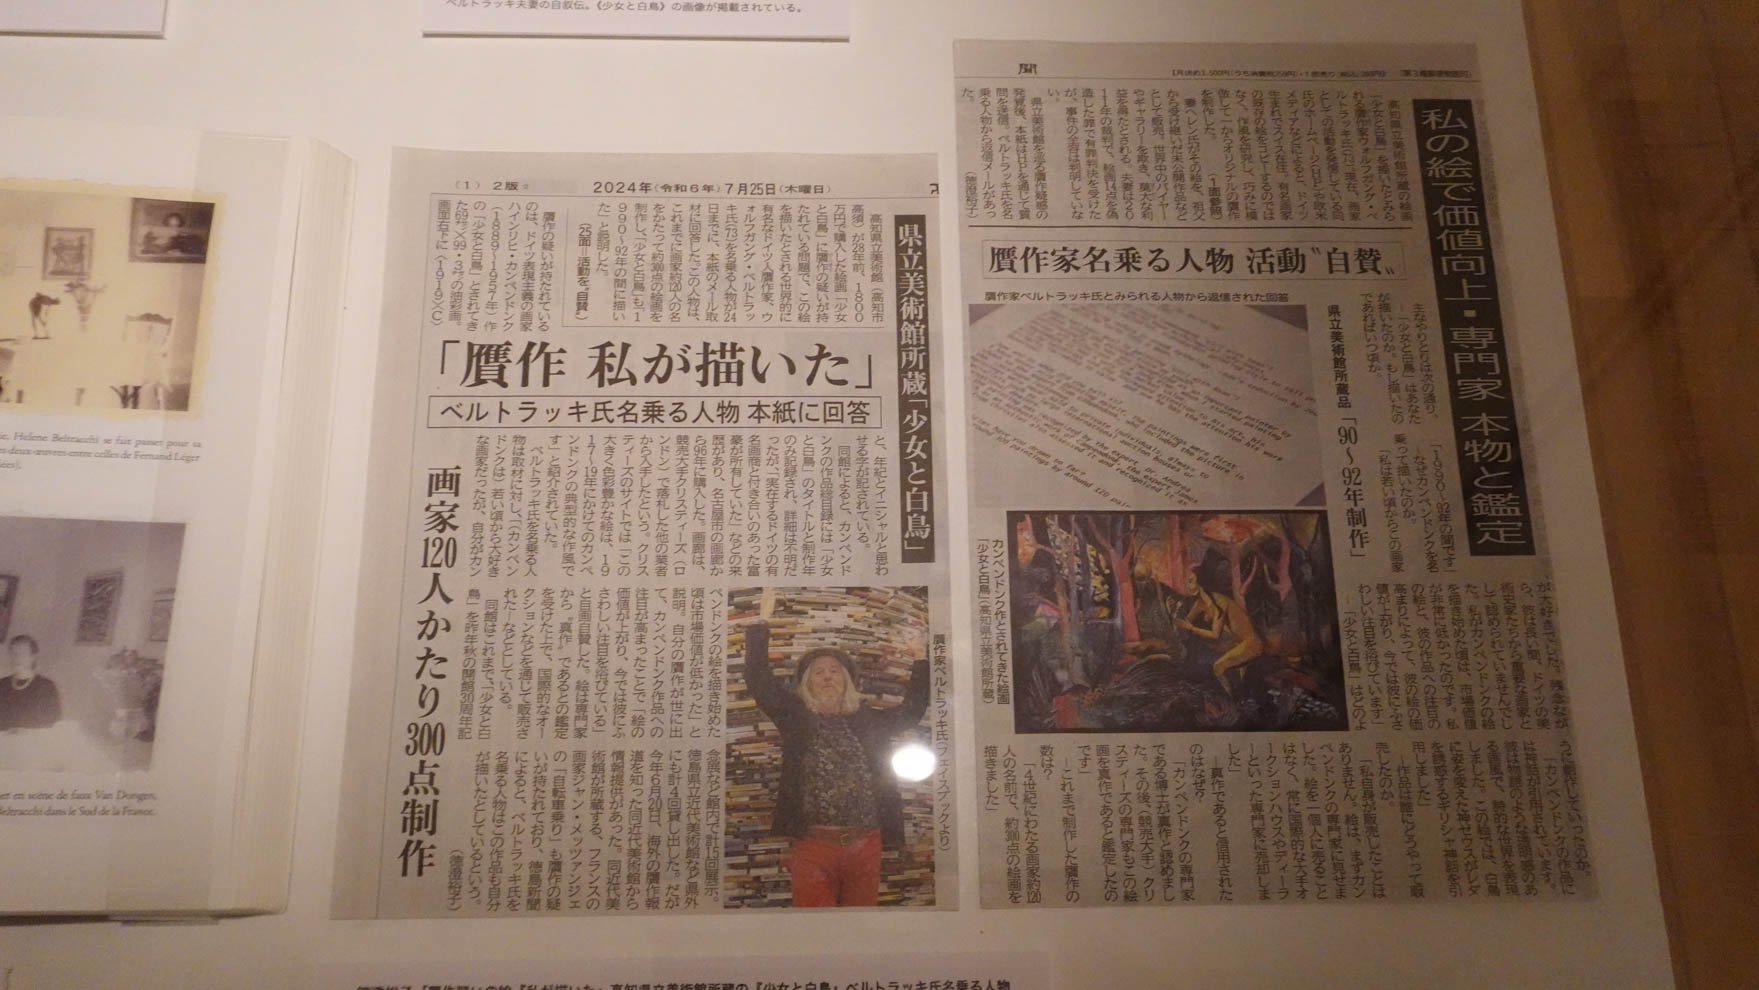 ベルトラッキ夫妻の自叙伝。《少女と白鳥》の画像が掲載されている。
(1) 2版
2024年(令和6年)7月25日(木曜日)
県立美術館所蔵「少女と白鳥」
「贋作 私が描いた」
ベルトラッキ氏名乗る人物 本紙に回答
画家120人かたり300点制作
高知県立美術館(高知市
高須)が28年前、1800
万円で購入した絵画「少女
と白鳥」に贋作の疑いが持
たれている問題で、この絵
を描いたとされる世界的に
有名なドイツ人贋作家、ウ
ォルフガング・ベルトラッ
キ氏(73)を名乗る人物が24
日までに、本紙のメール取
材に回答した。この人物は、
これまでに画家約120人の名
をかたって約300点の絵画を
制作し、「少女と白鳥」も「1
990〜92年の間に描い
た」と説明した。
(25面=活動を〝自賛〟)
贋作の疑いが持たれている
のは、ドイツ表現主義の画家
ハインリヒ・カンペンドンク
(1889〜1957年)作
の「少女と白鳥」とされてき
た69㌢×99・3㌢の油彩画。
画面右下に(1919×C)
と、年紀とイニシャルと思わ
せる字が記されている。
同館によると、カンペンド
ンクの作品総目録には「少女
と白鳥」のタイトルと制作年
のみ記録され、詳細は不明だ
ったが、「実在するドイツの有
名画商と付き合いのあった富
豪が所有していた」などの来
歴があり、名古屋市の画廊か
ら96年に購入した。画廊は、
競売大手クリスティーズ(ロ
ンドン)で落札した他の業者
から入手したという。クリス
ティーズのサイトでは「この
大きく色彩豊かな絵は、19
17〜19年にかけてのカンペ
ンドンクの典型的な作風で
す」と紹介されていた。
ベルトラッキ氏を名乗る人
物は取材に対し、「(カンペン
ドンクは)若い頃から大好き
な画家だったが、自分がカン
ペンドンクの絵を描き始めた
頃は市場価値が低かった」と
説明。自分の贋作が世に出
て、カンペンドンク作品への
注目が高まったことで、「絵の
価値が上がり、今では彼にふ
さわしい注目を浴びている」
と自画自賛した。絵は専門家
から〝真作〟であるとの鑑定
を受けた上で、国際的なオー
クションなどを通じて販売さ
れた―などとしている。
同館はこれまで、「少女と白
鳥」を昨年秋の開館30周年記
念展など館内で計15回展示。
徳島県立近代美術館など県外
にも計4回貸し出した。だが
今年6月20日、海外の贋作報
道を知った同近代美術館から
情報提供があった。同近代美
術館が所蔵する、フランスの
画家ジャン・メッツァンジェ
の「自転車乗り」も贋作の疑
いが持たれており、徳島新聞
によると、ベルトラッキ氏を
名乗る人物はこの作品も自分
が描いたとしているという。
(徳澄裕子)
贋作家ベルトラッキ氏(フェイスブックより)
聞
私の絵で価値向上・専門家 本物と鑑定
贋作家名乗る人物 活動〝自賛〟
高知県立美術館所蔵の絵画
「少女と白鳥」を描いたとみら
れる贋作家ウォルフガング・ベ
ルトラッキ氏(73)は現在、画家
としての活動を発信している同
氏のホームページ(HP)や欧米
メディアなどによると、ドイツ
生まれでスイス在住。有名画家
の既存の絵をコピーするのでは
なく、作風を研究し、巧みに模
倣して一からオリジナルの贋作
を制作した。
(1面参照)
妻ヘレン氏がその絵を、祖父
から受け継いだ未公開作品など
として販売。世界中のバイヤー
やギャラリーを欺き、莫大な利
益を得たとされる。夫妻は20
11年の裁判で、絵画14点を偽
造した罪で有罪判決を受けた
が、事件の全容は判明していな
い。
県立美術館を巡る贋作疑惑の
発覚後、本紙はHPを通じて質
問を送信。ベルトラッキ氏を名
乗る人物から返信メールがあっ
た。
(徳澄裕子)
贋作家ベルトラッキ氏とみられる人物から返信された回答
県立美術館所蔵品「90〜92年制作」
カンペンドンク作とされてきた絵画
「少女と白鳥」(高知県立美術館所蔵)
主なやりとりは次の通り。
―「少女と白鳥」はあなた
が描いたのか。もし描いたの
であればいつ頃か。
「1990〜92年の間です」
―なぜカンペンドンクを名
乗って描いたのか。
「私は若い頃からこの画家
が大好きでした。残念なが
ら、彼は長い間、ドイツの美
術史家たちから重要な画家と
して認められていませんでし
た。私がカンペンドンクの絵
を描き始めた頃は、市場価値
が非常に低かったのです。私
の絵と、彼の作品への注目の
高まりによって、彼の絵の価
値が上がり、今では彼にふさ
わしい注目を浴びています」
―「少女と白鳥」はどのよ
うに創作していったのか。
「カンペンドンクの作品に
は神話が引用されています。
売したのか。
「私自身が販売したことは
ありません。絵は、まずカン
ペンドンクの専門家に見せま
した。絵を一個人に売ること
はなく、常に国際的な大手オ
ークションハウスやディーラ
ーといった専門家に売却しま
した」
―真作であると信用された
のはなぜ?
「カンペンドンクの専門家
である博士が真作と認めまし
た。その後、(競売大手)クリ
スティーズの専門家もこの絵
画を真作であると鑑定したの
です」
―これまで制作した贋作の
数は?
「4世紀にわたる画家約120
人の名前で、約300点の絵画を
描きました」